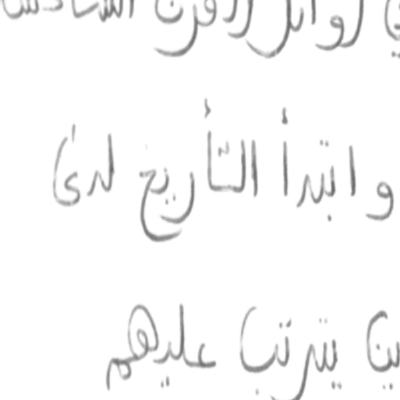 أوائل القرن السادس
وابتدأ التأريخ لدى
يترتب عليهم